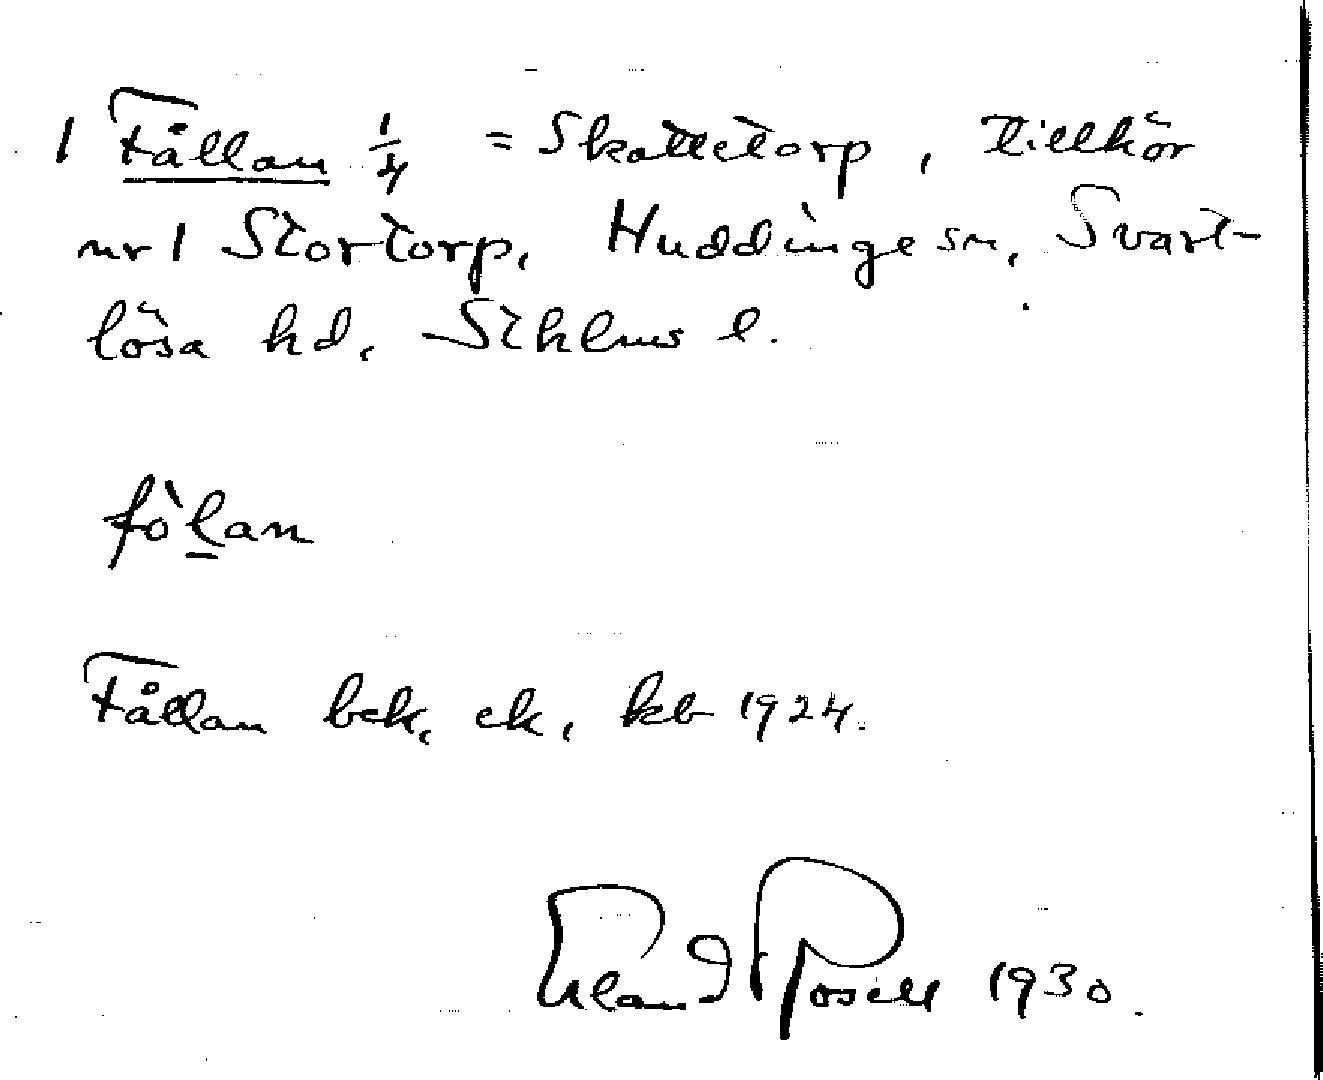 1 Fållan 1/4 = Skattetorp, tillhör
nr 1 Stortorp, Huddinge sn, Svart-
lösa hd, Sthlms l.
fò̀lan
Fållan bek, ek, kb 1924.
Erland Rosell 1930.